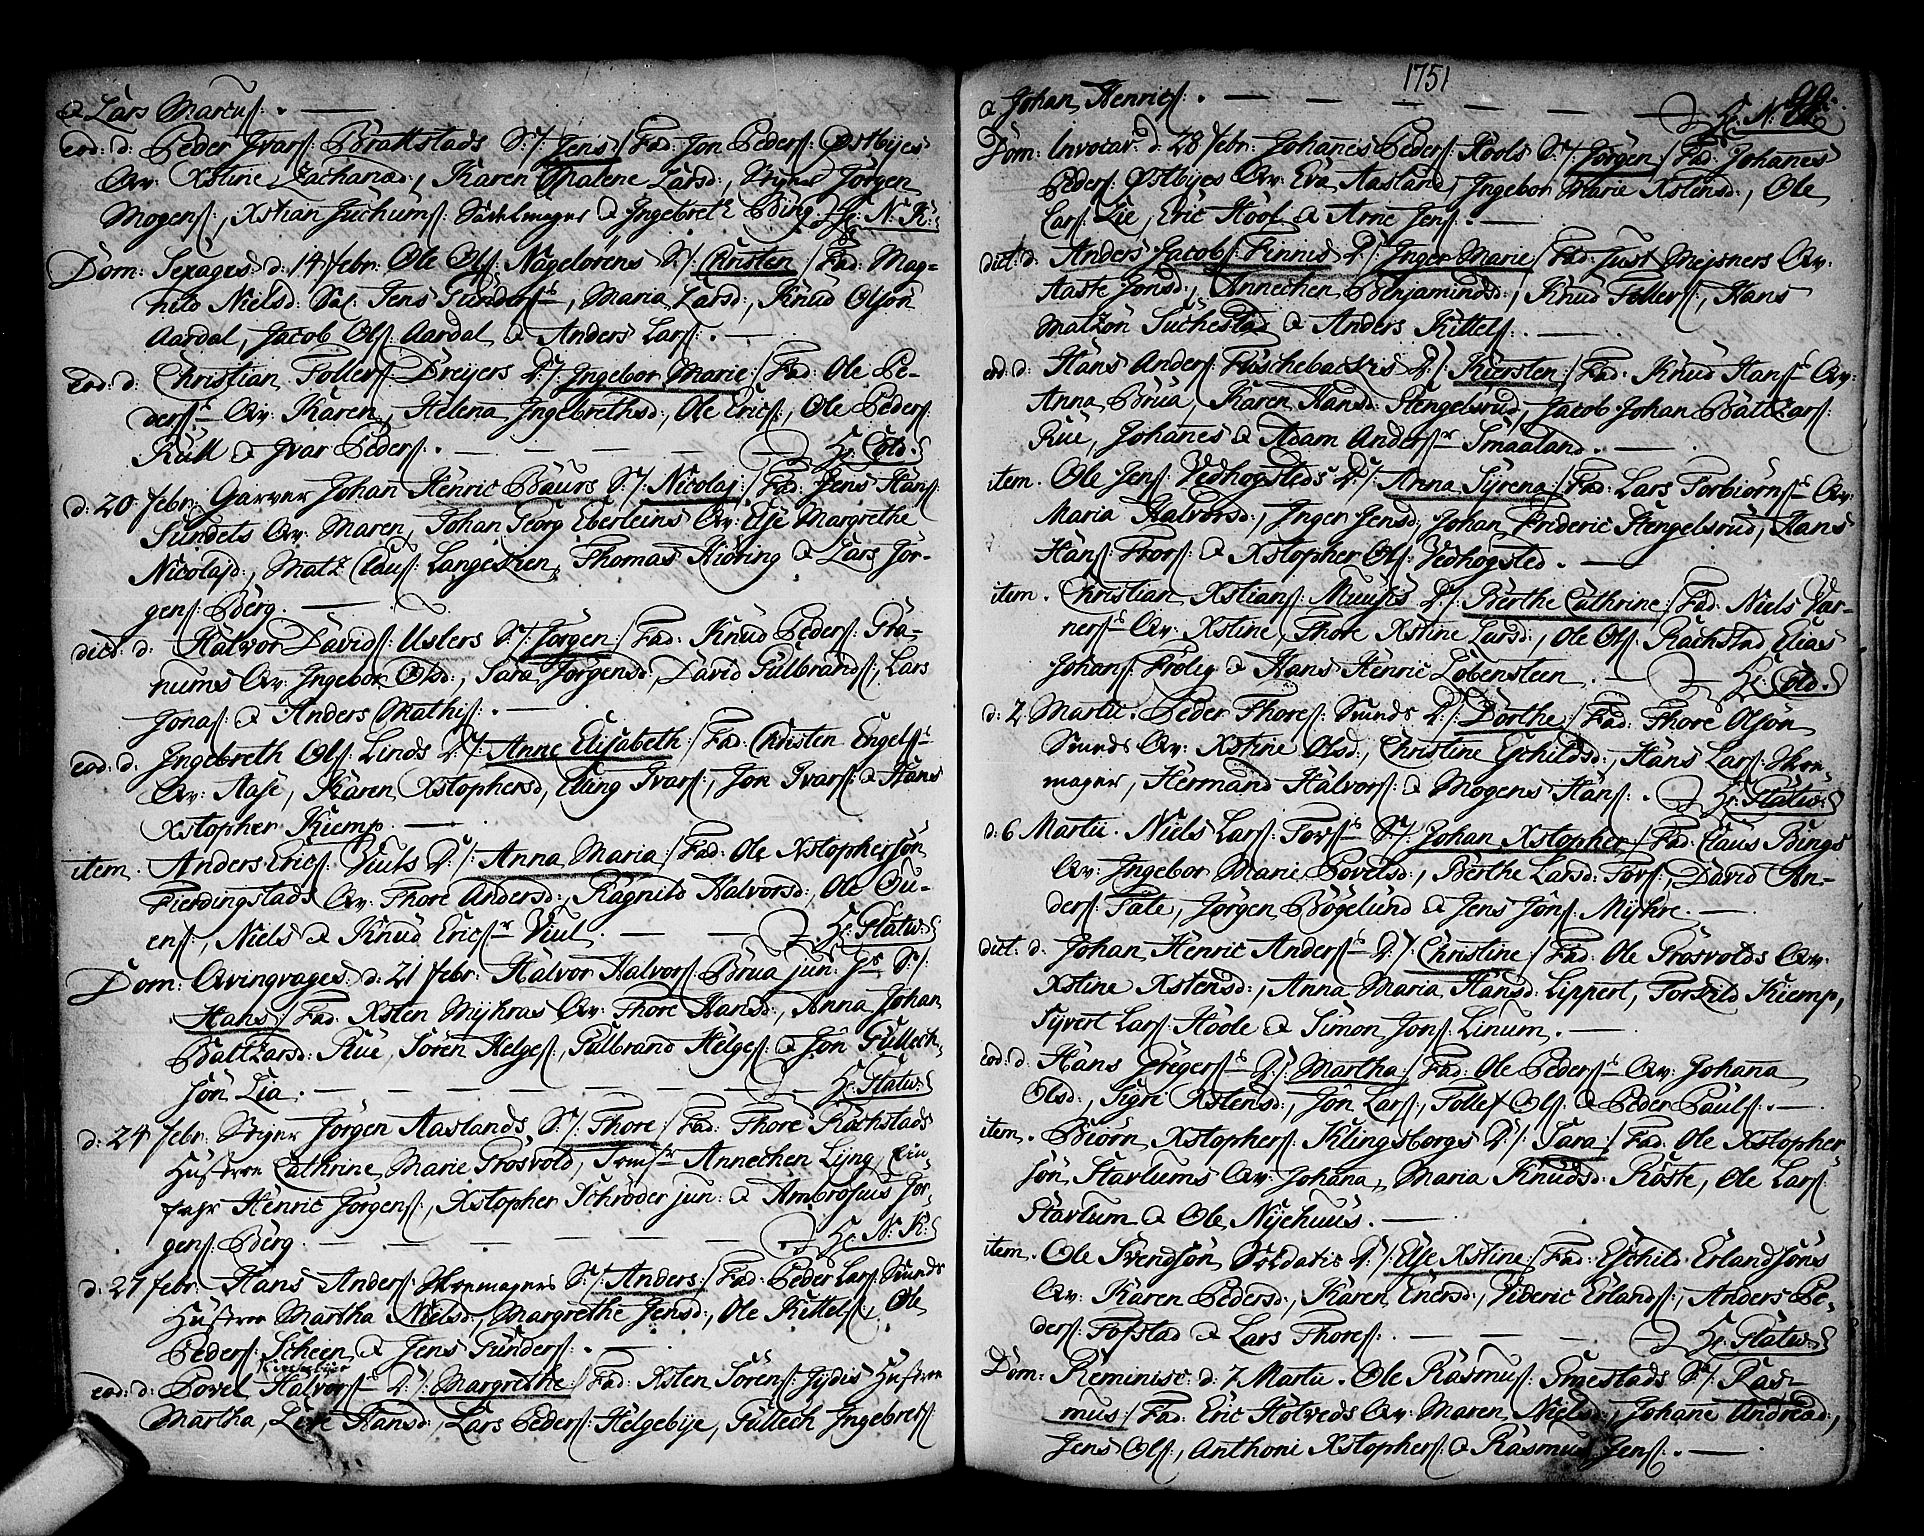 & Lars Marcuſ: . —
eod: d: Peder Jvarſ: Brattstads S:/: Jens :/ Fad: Jon Pederſ: Østbyes
Qv: Xstine Zachariæd:, Karen Malene Larsd:, Jörgen
Mogenſ:, Xstian Juchumſ: Sadelmager & Ingebreth Bing. Hr: N: K:
Dom: Sexages: d: 14 febr: Ole Olſ: Nageløréns S:/: Christen :/ Fad: Mag-
nild Nielsd: Sal: Jens Gunderſ:, Maria Larsd:, Knud Olsön
Aardal, Jacob Olſ: Aardal & Anders Larſ: . —
eod: d: Christian Tollefſ: Dreyers D:/: Ingebor Marie :/ Fad: Ole Pe-
derſ: Qv: Karen, Helena Ingebrethsd:, Ole Ericſ:, Ole Pederſ:
Rull & Jvar Pederſ: . — Hr: Cold.
d: 20 febr: Garver Johan Henric Baurs S:/: Nicolaj :/ Fad: Jens Hanſ:
Sundets Qv: Maren, Johan Georg Eberleins Qv: Else Margrethe
Nicolajd:, Matz Clauſ: Langesten, Thomas Kiöring & Lars Jör-
genſ: Berg. —
dict: d: Halvor Davidſ: Uslers S:/: Jörgen :/ Fad: Knud Pederſ: Gra-
nums Qv: Ingebor Olsd:, Sara Jörgensd:, David Gulbrandſ:, Lars
Jonaſ: & Anders Mathiſ: . —
eod: d: Ingebreth Olſ: Linds D:/: Anne Elisabeth :/ Fad: Christen Engelſ:
Qv: Aase, Karen Xstophersd:, Elling Ivarſ:, Jon Ivarſ: & Hans
Xstopher Kiemp. —
item. Anders Ericſ: Viuls D:/: Anna Maria :/ Fad: Ole Xstophersön
Fierdingstads Qv: Thore Andersd:, Ragnild Halvorsd:, Ole Gu-
enſ:, Niels & Knud Ericſ: Viul. — Hr: Flatw:
Dom: Qvinqvages: d: 21 febr: Halvor Halvorſ: Brua jun: S:/:
Hans :/ Fad: Xsten Myhras Qv: Thore Hansd:, Anna Johan
Baltzarsd: Rue, Sören Helgeſ:, Gulbrand Helgeſ: & Jon Gullich-
sön Lia. — Hr: Flatw:
d: 24 febr: Jörgen Aaslands S:/: Thore :/ Fad: Thore Rachstads
Hustroe Cathrine Marie Grosvold, Annechen Ljng,
Henric Jörgenſ:, Xstopher Schröder jun: & Ambrosius Jör-
genſ: Berg. — Hr: N: K:
d: 27 febr: Hans Anderſ: Skoemagers S:/: Anders :/ Fad: Peder Larſ: Smeds
Hustroe Martha Nielsd:, Margrethe Jensd:, Ole Kittelſ:, Ole
Pederſ: Scheen & Jens Gunderſ: . —
eod: d: Povel Halvorſ: D:/: Margrethe :/ Fad: Xsten Sörenſ: Jydis Hustroe
Martha, Live Hansd:, Lars Pederſ: Helgebye, Gullech Ingebretſ:
1751
& Johan Henricſ: . — Hr: N: K:
Dom: Invocav: d: 28 febr: Johanes Pederſ: Hools S:/: Jörgen :/ Fad: Johanes
Pederſ: Østbyes Qv: Eva Aasland, Ingebor Marie Xstensd:, Ole
Larſ: Lie, Eric Hool & Arne Jenſ: . —
dict: d: Anders Jacobſ: Finnis D:/: Inger Marie :/ Fad: Just Mejsners Qv:
Aaste Jonsd:, Annechen Benjaminsd:, Knud Tollefſ:, Hans
Matzon Suchestad & Anders Kittelſ: . —
eod: d: Hans Anderſ: Foschebachis D:/: Kiersten :/ Fad: Knud Hanſ: Qv:
Anna Brua, Karen Hansd: Stengelsrud, Jacob Johan Baltzarſ:
Rue, Johanes & Adam Anderſ: Smaaland. —
item. Ole Jenſ: Vedhogsteds D:/: Anna Syrena :/ Fad: Lars Torbiörnſ: Qv:
Maria Halvorsd:, Inger Jensd:, Johan Frideric Stengelsrud, Hans
Hanſ: Forſ: & Xstopher Olſ: Vedhogsted. —
item. Christian Xstianſ: Muujis D:/: Berthe Cathrine :/ Fad: Niels Var-
nerſ: Qv: Xstine, Thore Xstine Larsd:, Ole Olſ: Rachstad, Elias
Johanſ: Frölig & Hans Henric Löbensteen. — Hr: Cold.
d: 2 Martii. Peder Thoreſ: Smeds D:/: Dorthe :/ Fad: Thore Olsön
Smeds Qv: Xstine Olsd:, Christine Eschildsd:, Hans Larſ: Skoe-
mager, Hermand Halvorſ: & Mogens Hanſ: . Hr: Flatw:
d: 6 Martii. Niels Larſ: Forſ: S:/: Johan Xstopher :/ Fad: Claus Bings
Qv: Ingebor Marie Povelsd:, Berthe Larsd: Forſ:, David An-
derſ: Fate, Jörgen Bögelund & Jens Jönſ: Myhre. —
dict: d: Johan Henric Anderſ: D:/: Christine :/ Fad: Ole Grosvolds Qv:
Xstine Xstensd:, Anna Maria Hansd: Lippert, Torkild Kiemp,
Syvert Larſ: Hoole & Simon Jonſ: Linum. —
eod: d: Hans Gregerſ: D:/: Martha :/ Fad: Ole Pederſ: Qv: Johana
Olsd:, Sigri Xstensd:, Jon Larſ:, Tollef Olſ: & Peder Paulſ: . —
item. Biörn Xstopherſ: Klingsborgs D:/: Sara :/ Fad: Ole Xstopher-
sön Stavlums Qv: Johana, Maria Knudsd: Röste, Ole Larſ:
Stavlum & Ole Nyehuus. —
item. Ole Svendsön Soldatis D:/: Else Xstine :/ Fad: Eschild Erlandsöns
Qv: Karen Pedersd:, Karen Enersd:, Videric Erlandſ:, Anders Pe-
derſ: Fofstad & Lars Thoreſ: . — Hr: Flatw:
Dom: Reminisc: d: 7 Martii. Ole Rasmuſ: Smestads S:/: Ras-
mus :/ Fad: Eric Holveds Qv: Maren Nielsd:, Johane Andread:,
Jens Olſ:, Anthoni Xstopherſ: & Rasmus Jenſ: . —